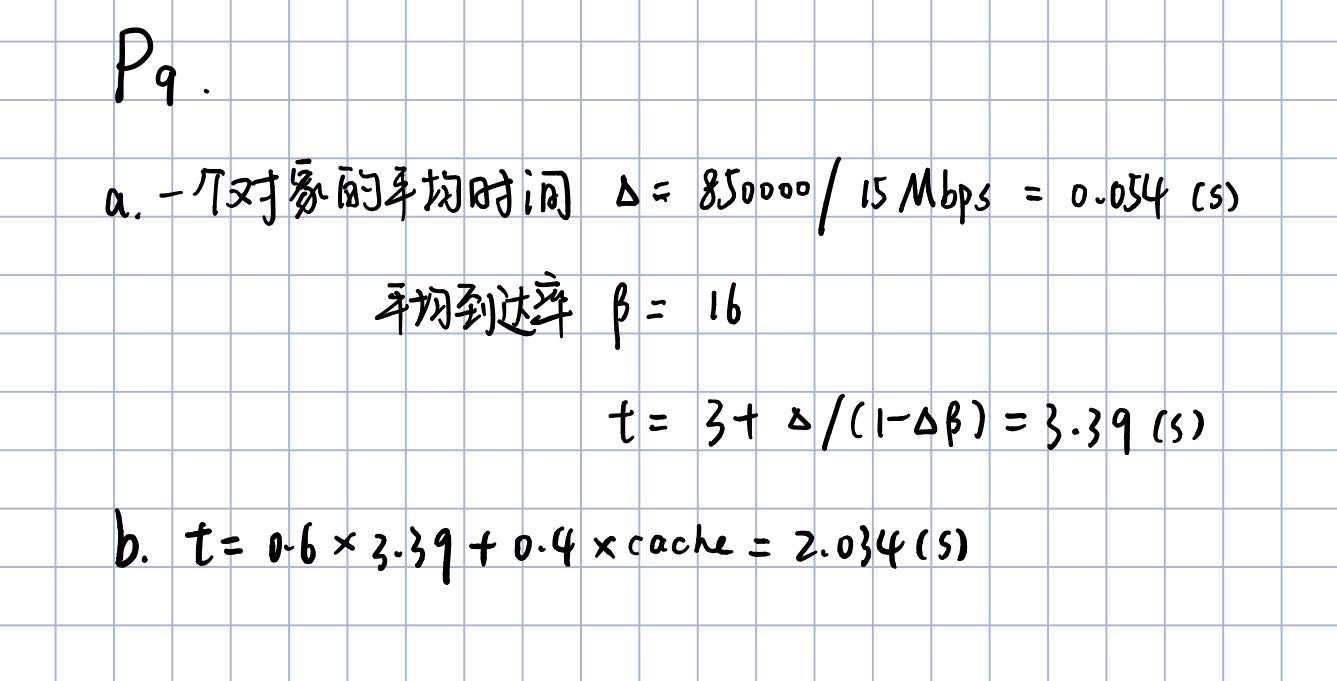 P9.
a. 一个对象的平均时间 Δ = 850000/15Mbps = 0.054 (s)
平均到达率 β = 16
t = 3 + Δ/(1-Δβ) = 3.39 (s)
b. t = 0.6 × 3.39 + 0.4 × cache = 2.034 (s)